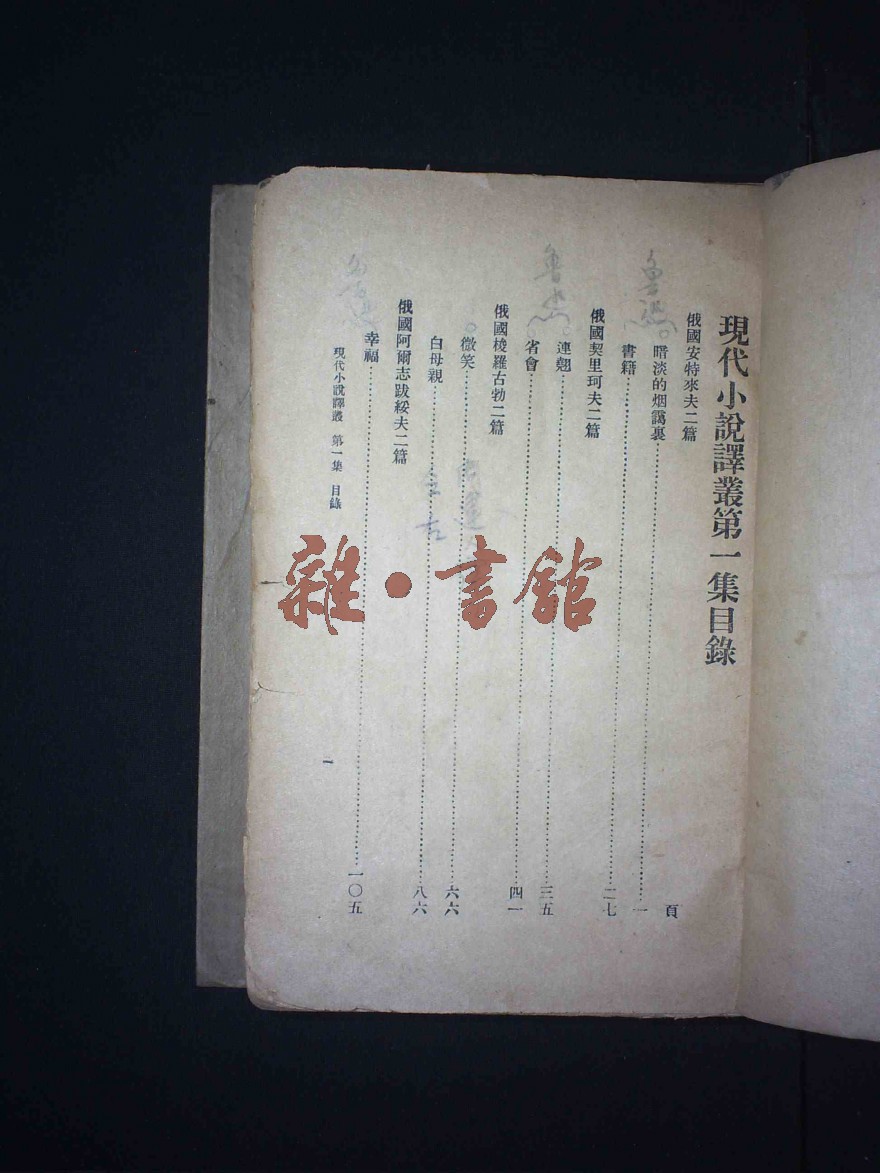 現代小說譯叢第一集目錄
頁
俄國安特來夫二篇
暗淡的烟靄裏……一
書籍……二七
俄國契里珂夫二篇
連翹……三五
省會……四一
俄國梭羅古勃二篇
微笑……六六
白母親……八六
俄國阿爾志跋綏夫二篇
幸福……一〇五
現代小說譯叢 第一集 目錄
一
魯迅
魯迅
雜·書館